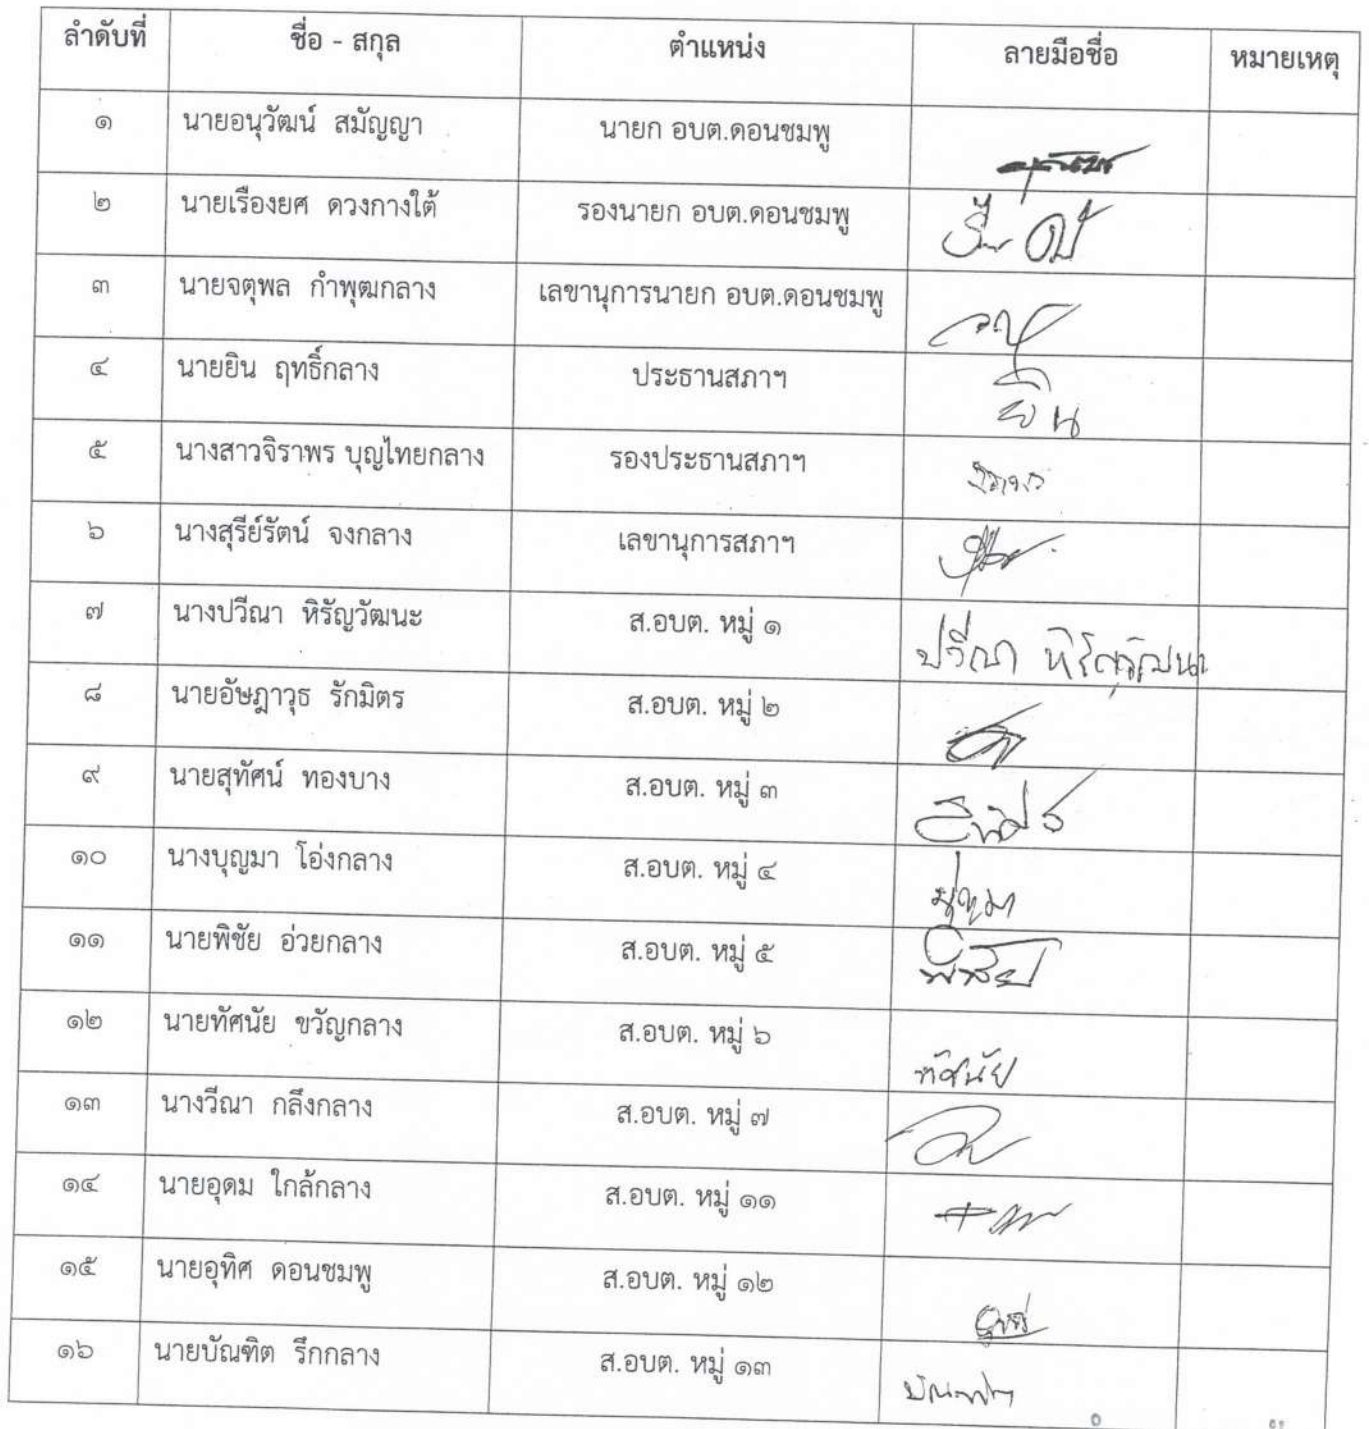 ลำดับที่ ชื่อ - สกุล ตำแหน่ง ลายมือชื่อ หมายเหตุ
๑ นายอนุวัฒน์ สมัญญา นายก อบต.ดอนชมพู
๒ นายเรืองยศ ดวงกางใต้ รองนายก อบต.ดอนชมพู
๓ นายจตุพล กำพุฒกลาง เลขานุการนายก อบต.ดอนชมพู
๔ นายยิน ฤทธิ์กลาง ประธานสภาฯ ยิน
๕ นางสาวจิราพร บุญไทยกลาง รองประธานสภาฯ
๖ นางสุรีย์รัตน์ จงกลาง เลขานุการสภาฯ
๗ นางปวีณา หิรัญวัฒนะ ส.อบต. หมู่ ๑ ปวีณา หิรัญวัฒนะ
๘ นายอัษฎาวุธ รักมิตร ส.อบต. หมู่ ๒
๙ นายสุทัศน์ ทองบาง ส.อบต. หมู่ ๓
๑๐ นางบุญมา โอ่งกลาง ส.อบต. หมู่ ๔ บุญมา
๑๑ นายพิชัย อ่วยกลาง ส.อบต. หมู่ ๕
๑๒ นายทัศนัย ขวัญกลาง ส.อบต. หมู่ ๖ ทัศนัย
๑๓ นางวีณา กลึงกลาง ส.อบต. หมู่ ๗
๑๔ นายอุดม ใกล้กลาง ส.อบต. หมู่ ๑๑
๑๕ นายอุทิศ ดอนชมพู ส.อบต. หมู่ ๑๒
๑๖ นายบัณฑิต รึกกลาง ส.อบต. หมู่ ๑๓